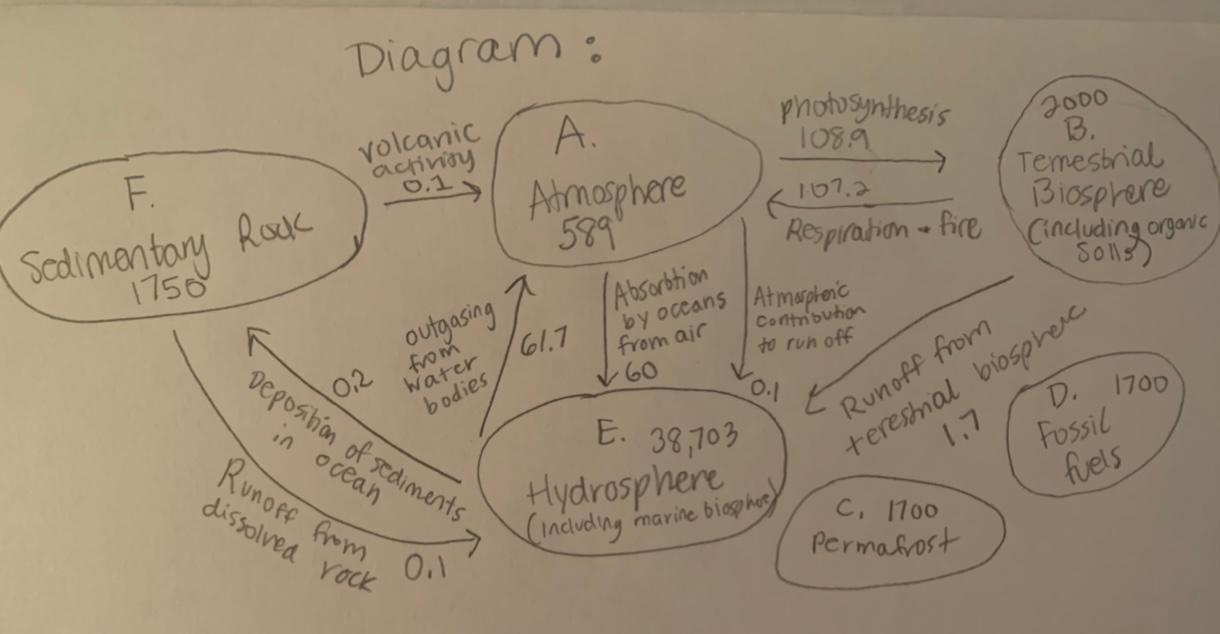 Diagram :
F.
Sedimentary Rock
1750
volcanic
activity
0.1
A.
Atmosphere
589
photosynthesis
108.9
107.2
Respiration + fire
2000
B.
Terrestrial
Biosphere
(including organic
Soils)
outgasing
from
water
bodies
61.7
Absorbtion
by oceans
from air
60
Atmospheric
contribution
to run off
0.1
Runoff from
terestrial biosphere
1.7
D. 1700
Fossil
fuels
0.2
Deposition of sediments
in ocean
Runoff from
dissolved rock
0.1
E. 38,703
Hydrosphere
(including marine biosphere)
C. 1700
Permafrost